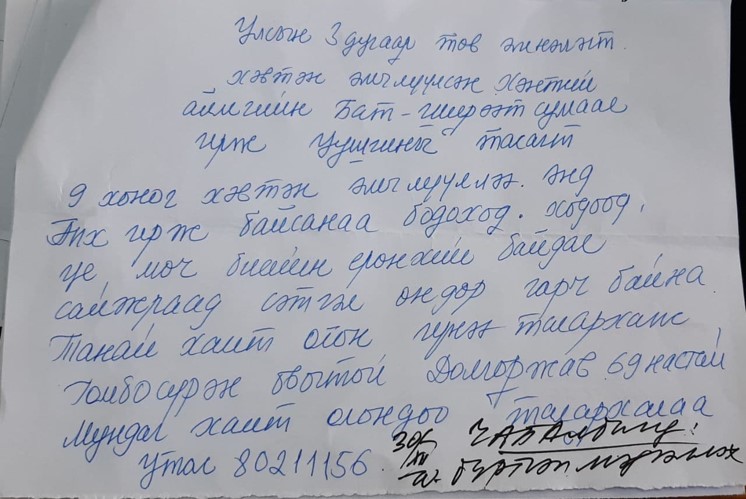 Улсын 3 дугаар төв эмнэлэгт.
хэвтэн эмчлүүлсэн Хэнтий
аймгийн Бат-Ширээт сумаас
ирж Уушгины тасагт
9 хоног хэвтэн эмчлүүллээ. энд
Анх ирж байсанаа бодоход. ходоод,
үе мөч биеийн ерөнхий байдал
сайжраад сэтгэл өндөр гарч байна.
Танай хамт олон гүнээ талархаж,
Гомбосүрэн овогтой Долгоржав 69 настай
Мундаг хамт олондоо талархалаа
Утас 80211156.